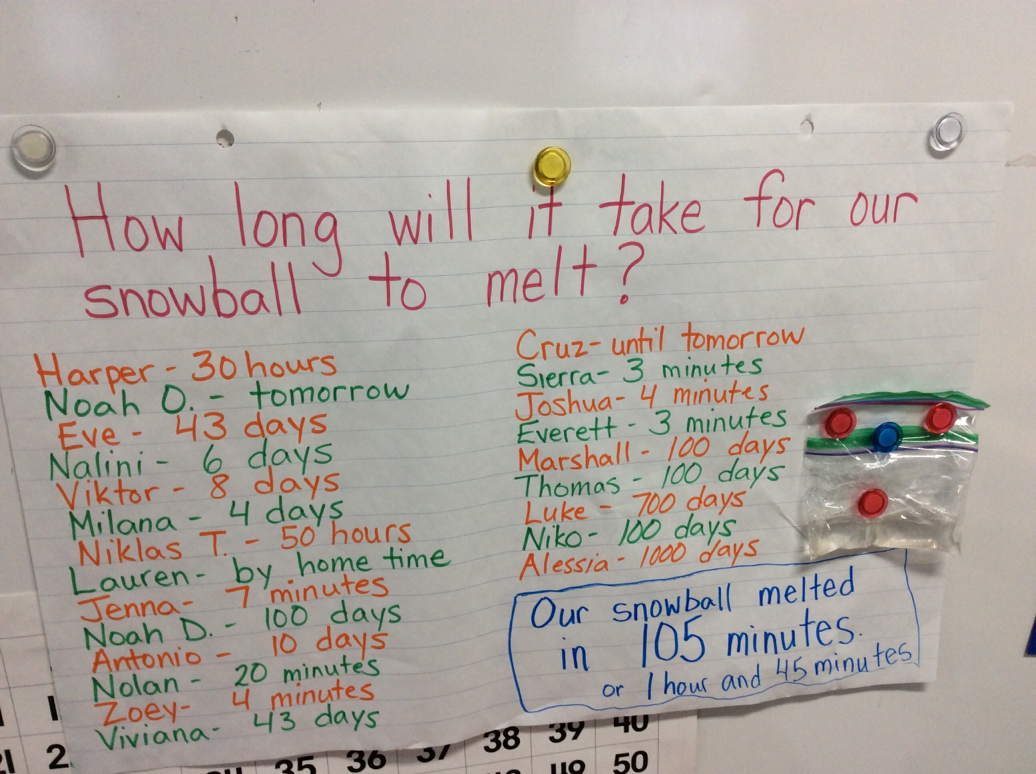 How long will it take for our
snowball to melt?
Harper - 30 hours
Noah O. - tomorrow
Eve - 43 days
Nalini - 6 days
Viktor - 8 days
Milana - 4 days
Niklas T. - 50 hours
Lauren - by home time
Jenna - 7 minutes
Noah D. - 100 days
Antonio - 10 days
Nolan - 20 minutes
Zoey - 4 minutes
Viviana - 43 days
Cruz - until tomorrow
Sierra - 3 minutes
Joshua - 4 minutes
Everett - 3 minutes
Marshall - 100 days
Thomas - 100 days
Luke - 700 days
Niko - 100 days
Alessia - 1000 days
Our snowball melted
in 105 minutes.
or 1 hour and 45 minutes
35 36 37 38 39 40
50